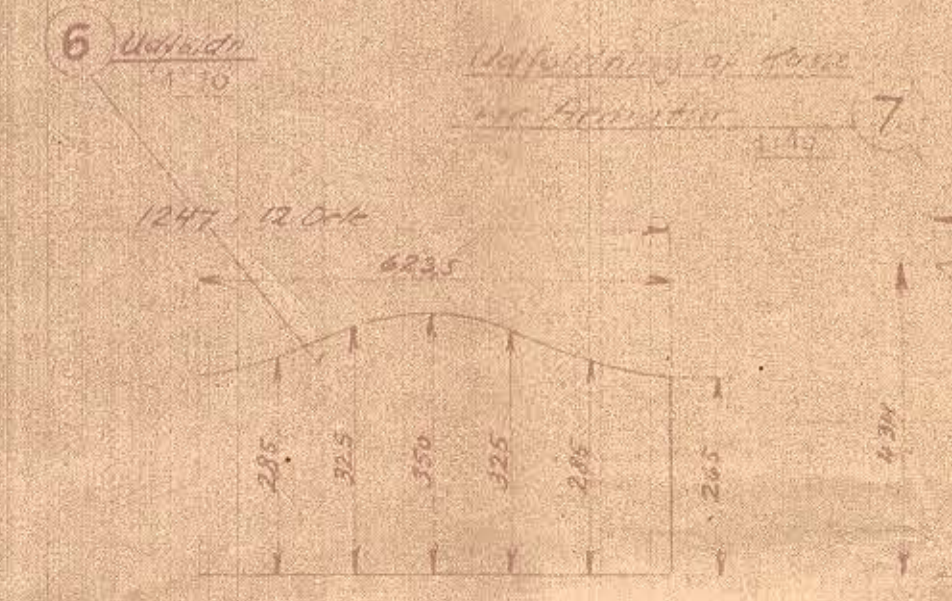 6 Udfoldn
1:10
Udfoldning af
7
1:10
1247 : 12
6235
285
325
350
325
285
265
434